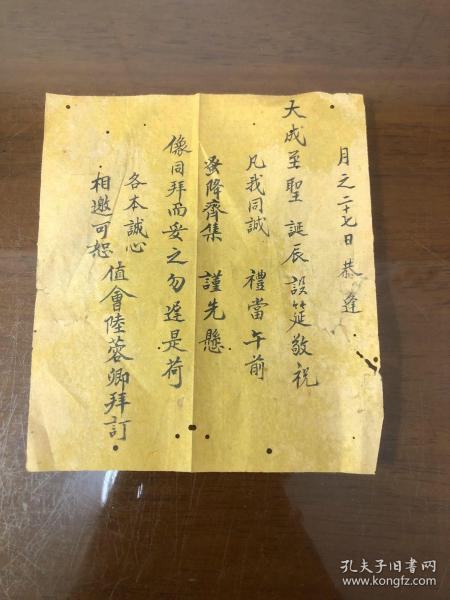 月之二十七日恭逢
大成至聖 誕辰設筵敬祝
凡我同誠 禮當午前
蚤降齊集 謹先懸
像同拜而妥之勿遲是荷
各本誠心
相邀可恕 值會陸蓉卿拜訂
孔夫子旧书网
www.kongfz.com